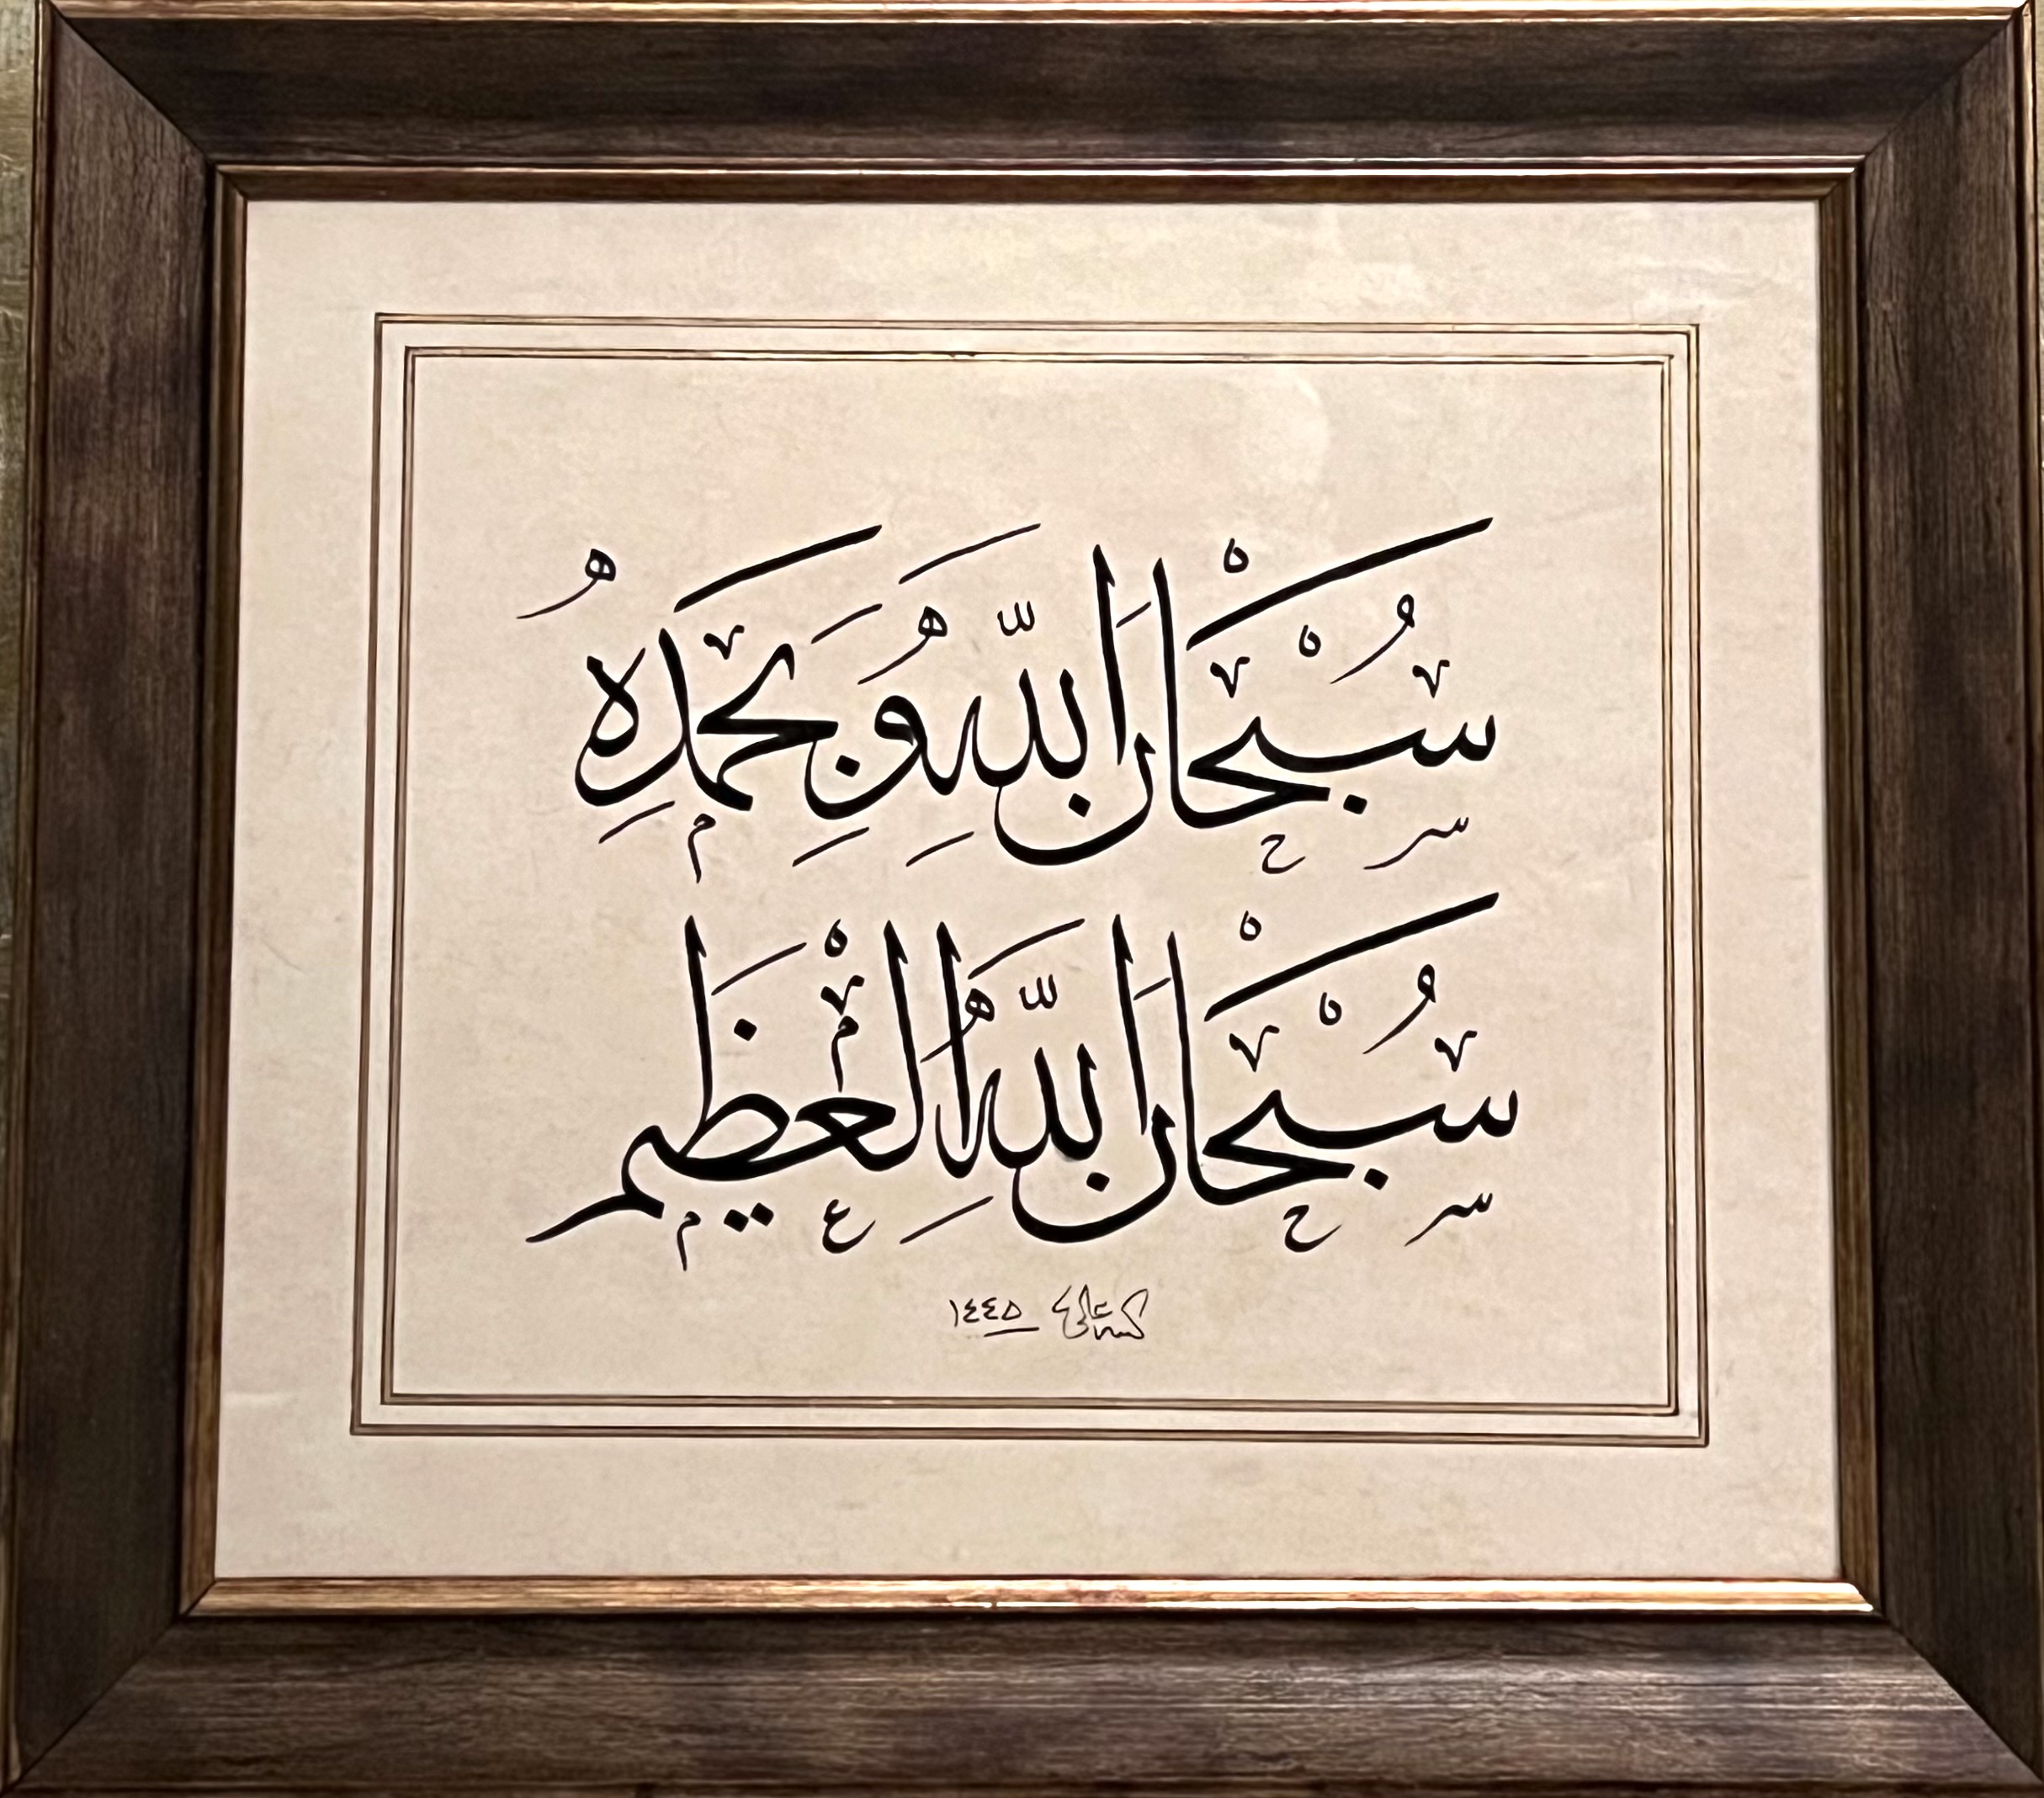 سُبْحَانَ اللّٰهِ وَبِحَمْدِهِ
سُبْحَانَ اللّٰهِ الْعَظِيم
١٤٤٥